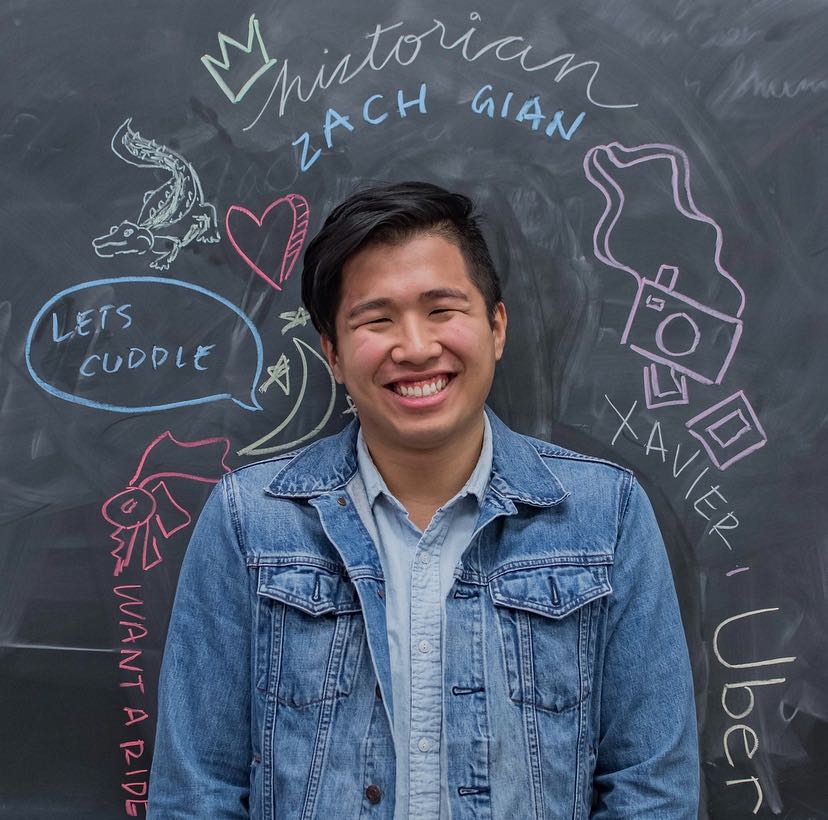 historian
ZACH GIAN
LETS
CUDDLE
XAVIER
WANT A RIDE
Uber